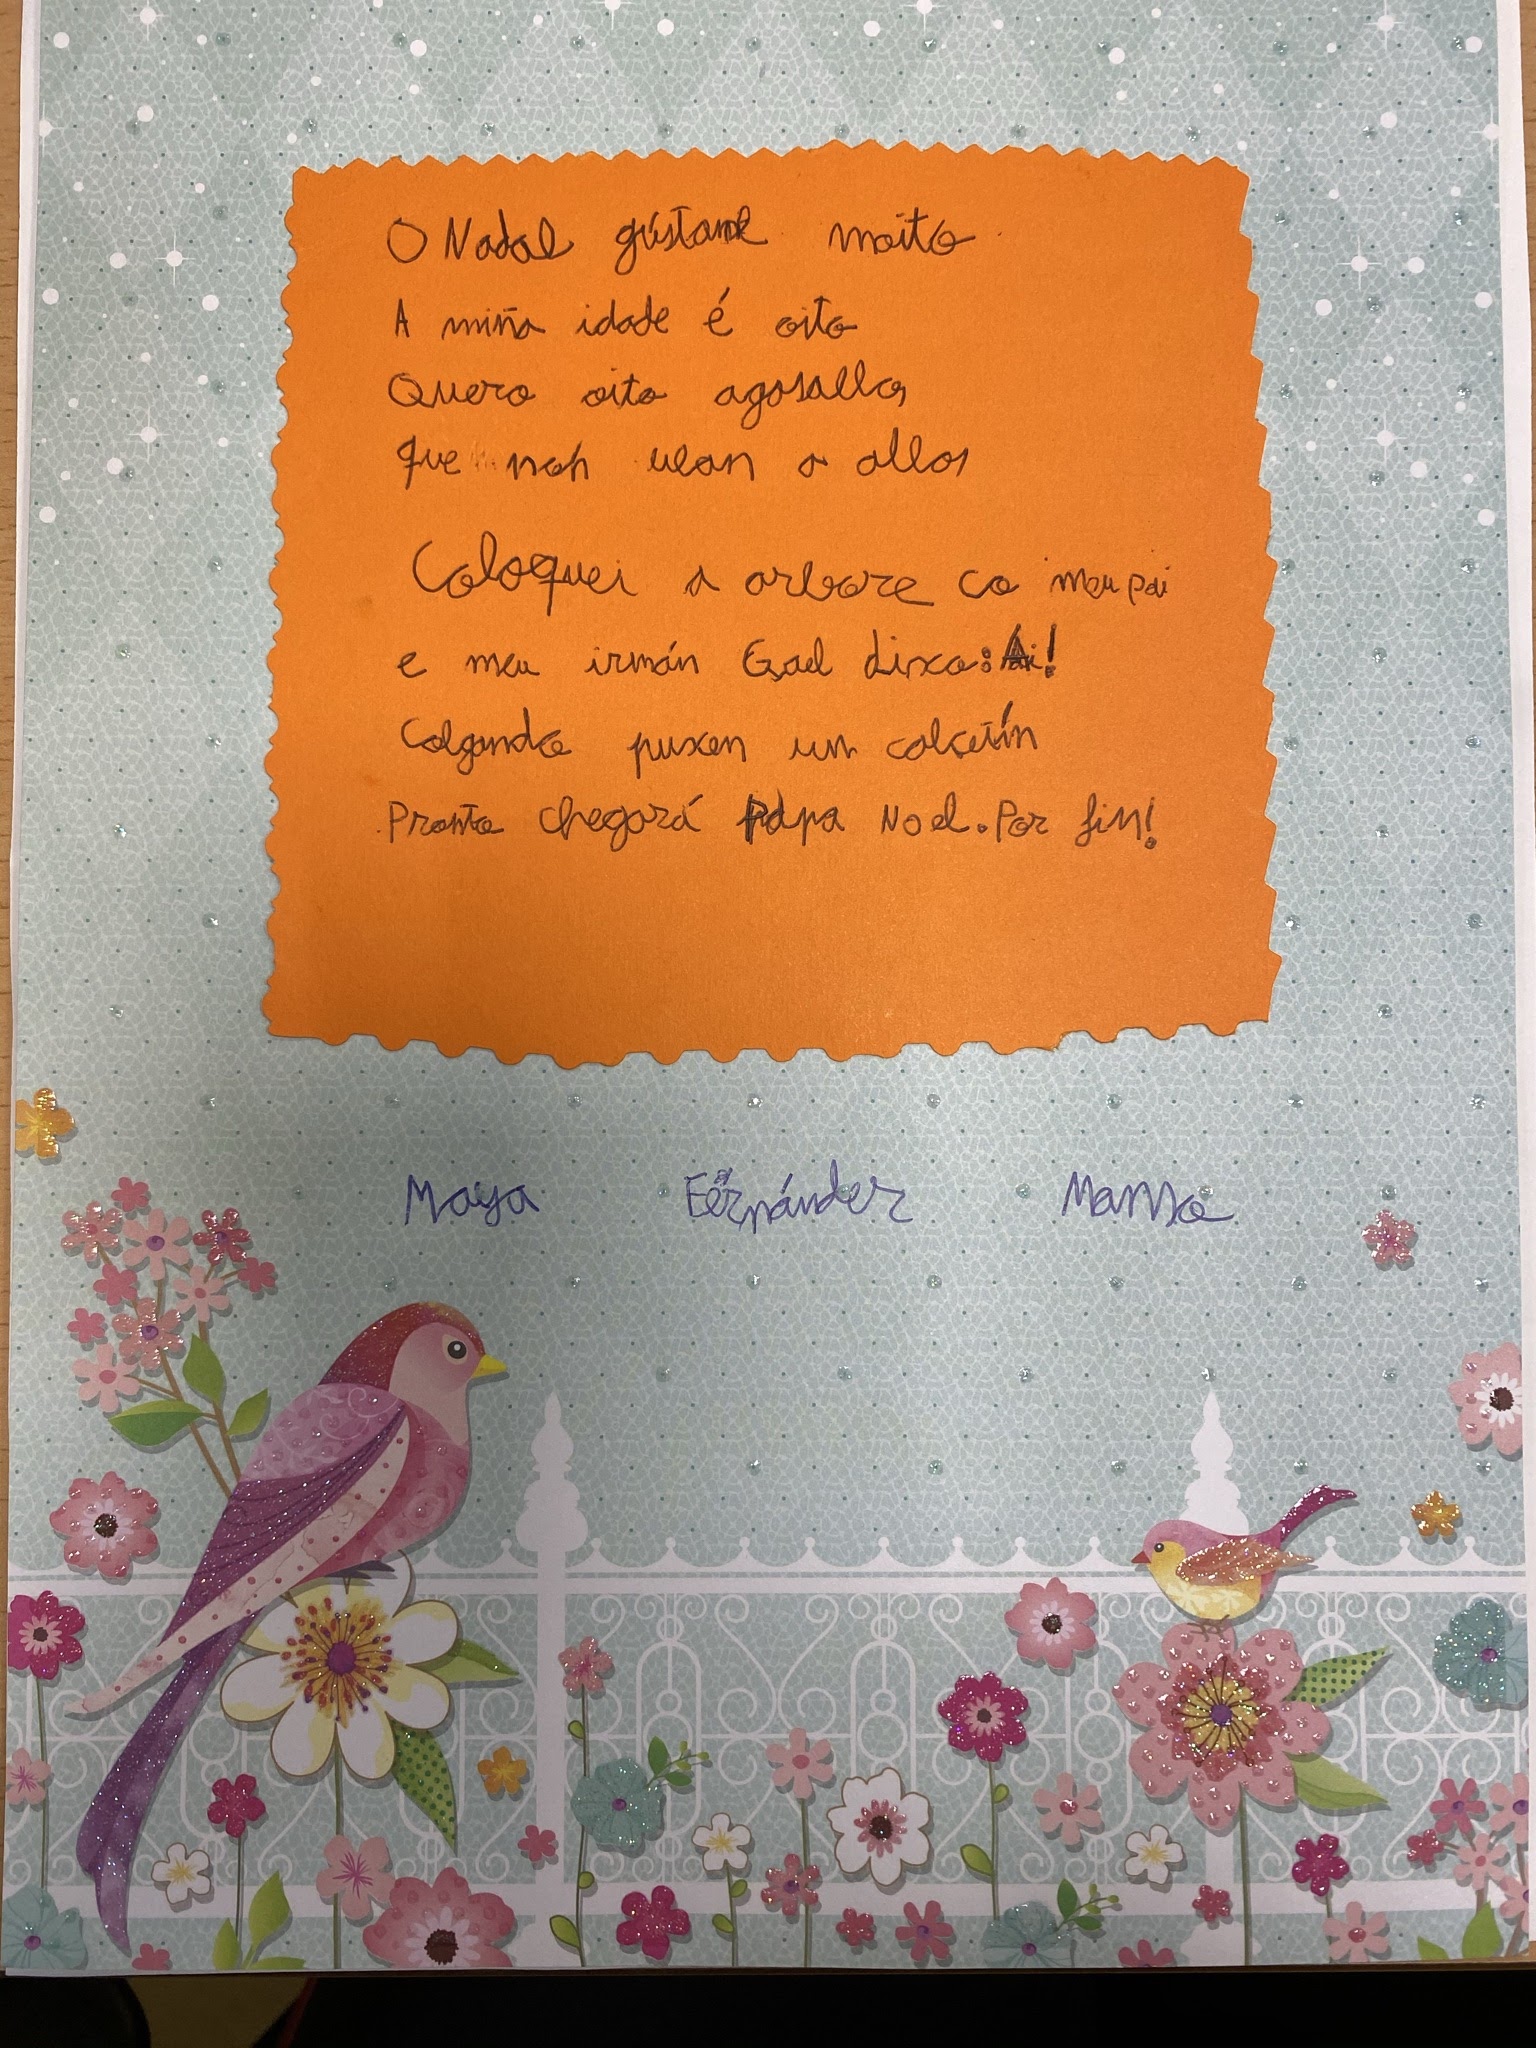 O Nadal gústame moito
A miña idade é oito
Quero oito agasallos
que non vean a allos
Coloquei a arbore co meu pai
e meu irmán Gael dixo: Ai!
Colgando puxen un calcetín
Pronto chegará Papa Noel. Por fin!
Maya Fernánder